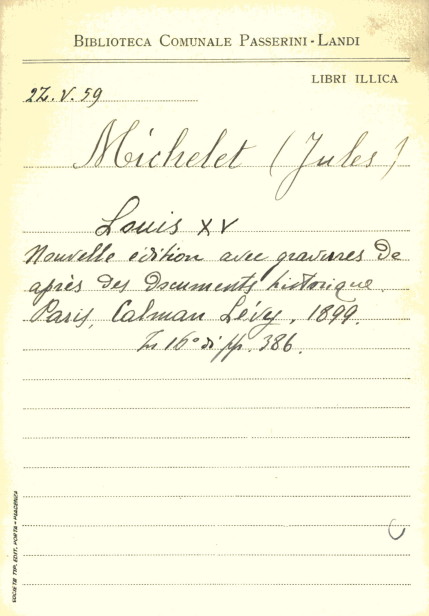 BIBLIOTECA COMUNALE PASSERINI-LANDI
LIBRI ILLICA
2Z.V.59
Michelet (Jules)
Louis XV
Nouvelle édition avec gravures de
après des documents historique.
Paris, Calman Lévy, 1899.
In 16° di pp. 386.
SOCIETÀ TIP. EDIT. PORTA - PIACENZA